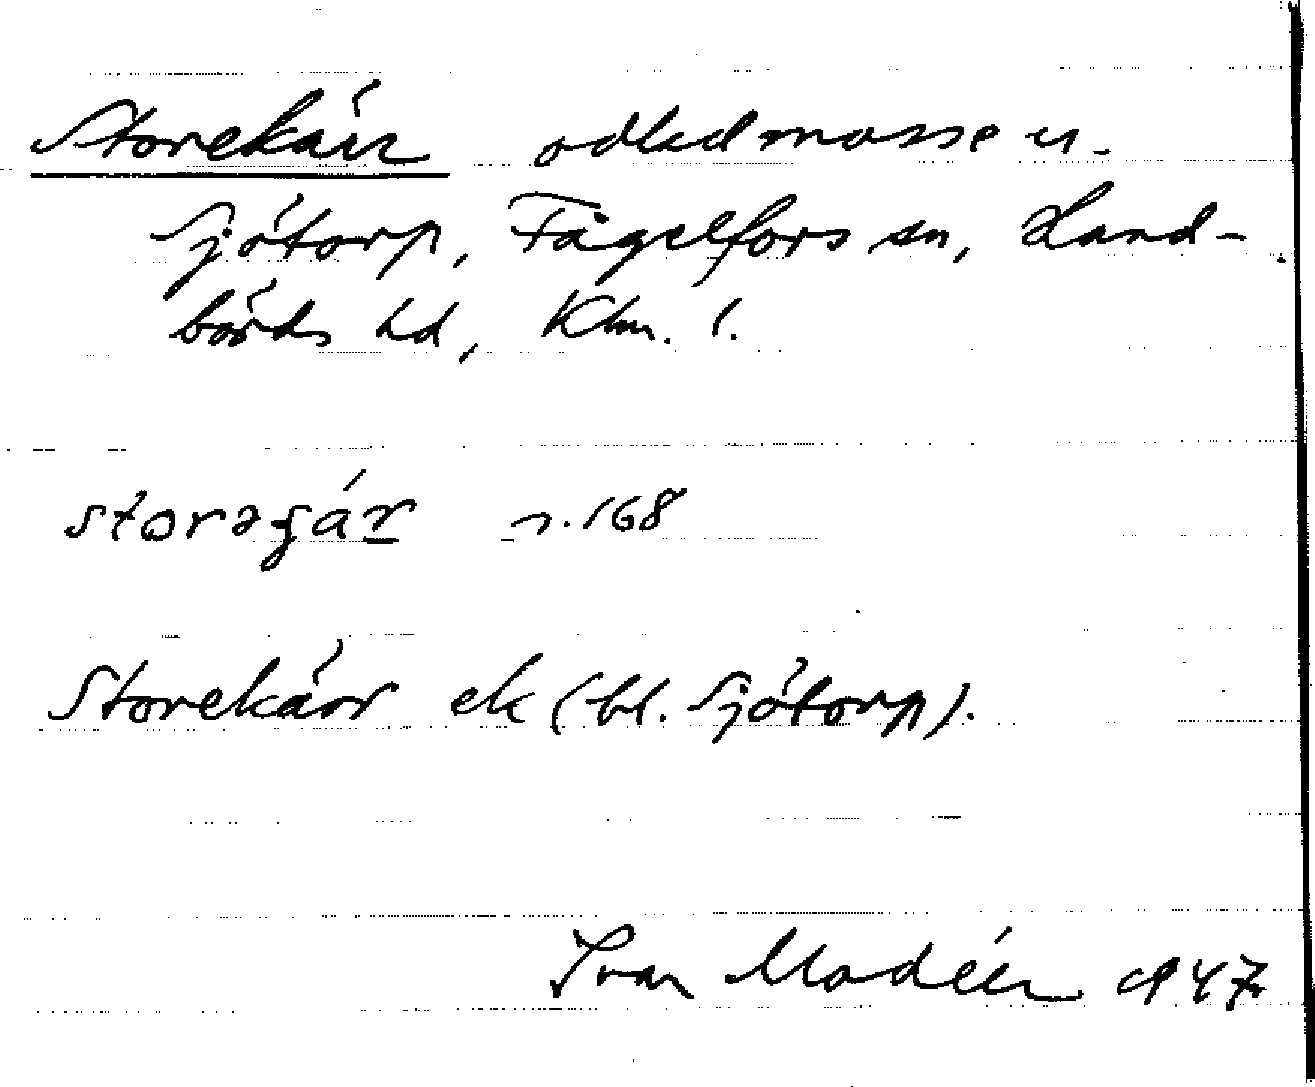 Storekärr odlad mosse u.
Sjötorp, Fågelfors sn, Hand-
börds hd, Klm. l.
storəgár n. 168
Storekärr ek (bl. Sjötorp).
Ivar Modéer 1947